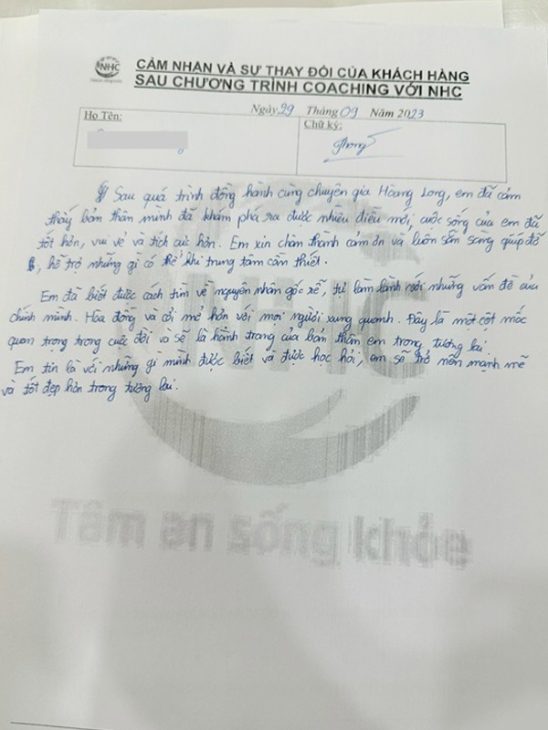 NHC
CẢM NHẬN VÀ SỰ THAY ĐỔI CỦA KHÁCH HÀNG
SAU CHƯƠNG TRÌNH COACHING VỚI NHC
Ngày 29 Tháng 09 Năm 2023
Họ Tên:
Chữ ký:
Sau quá trình đồng hành cùng chuyên gia Hoàng Long, em đã cảm
thấy bản thân mình đã khám phá ra được nhiều điều mới, cuộc sống của em đã
tốt hơn, vui vẻ và tích cực hơn. Em xin chân thành cảm ơn và luôn sẵn sàng giúp đỡ
, hỗ trợ những gì có thể khi trung tâm cần thiết.
Em đã biết được cách tìm về nguyên nhân gốc rễ, tự làm lành với những vấn đề của
chính mình. Hòa đồng và cởi mở hơn với mọi người xung quanh. Đây là một cột mốc
quan trọng trong cuộc đời và sẽ là hành trang của bản thân em trong tương lai.
Em tin là với những gì mình được biết và được học hỏi, em sẽ trở nên mạnh mẽ
và tốt đẹp hơn trong tương lai.
NHC
Tâm an sống khỏe